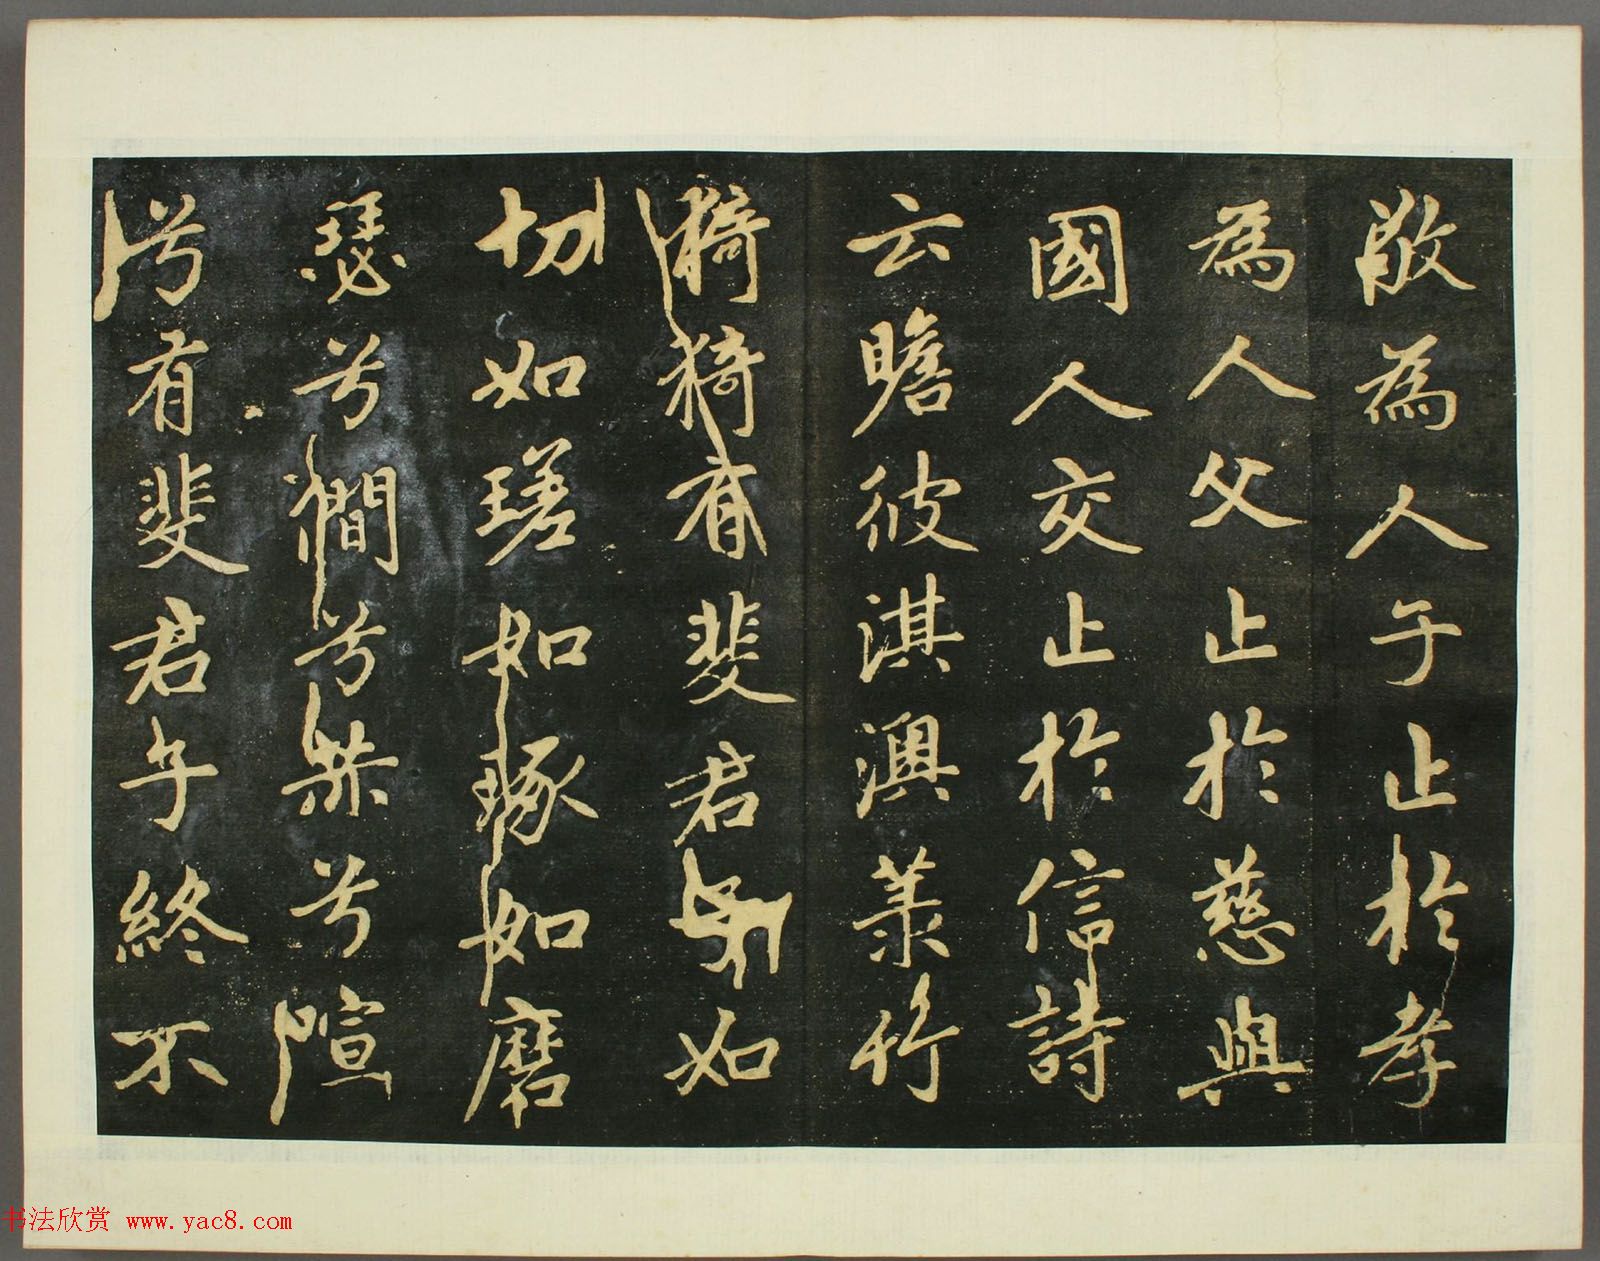 敬為人子止於孝
為人父止於慈與
國人交止於信詩
云瞻彼淇澳菉竹
猗猗有斐君子如
切如瑳如琢如磨
瑟兮僩兮赫兮喧
兮有斐君子終不
书法欣赏 www.yac8.com